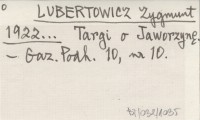 LUBERTOWICZ Zygmunt
1922... Targi o Jaworzynę.
– Gaz. Podh. 10, na 10.